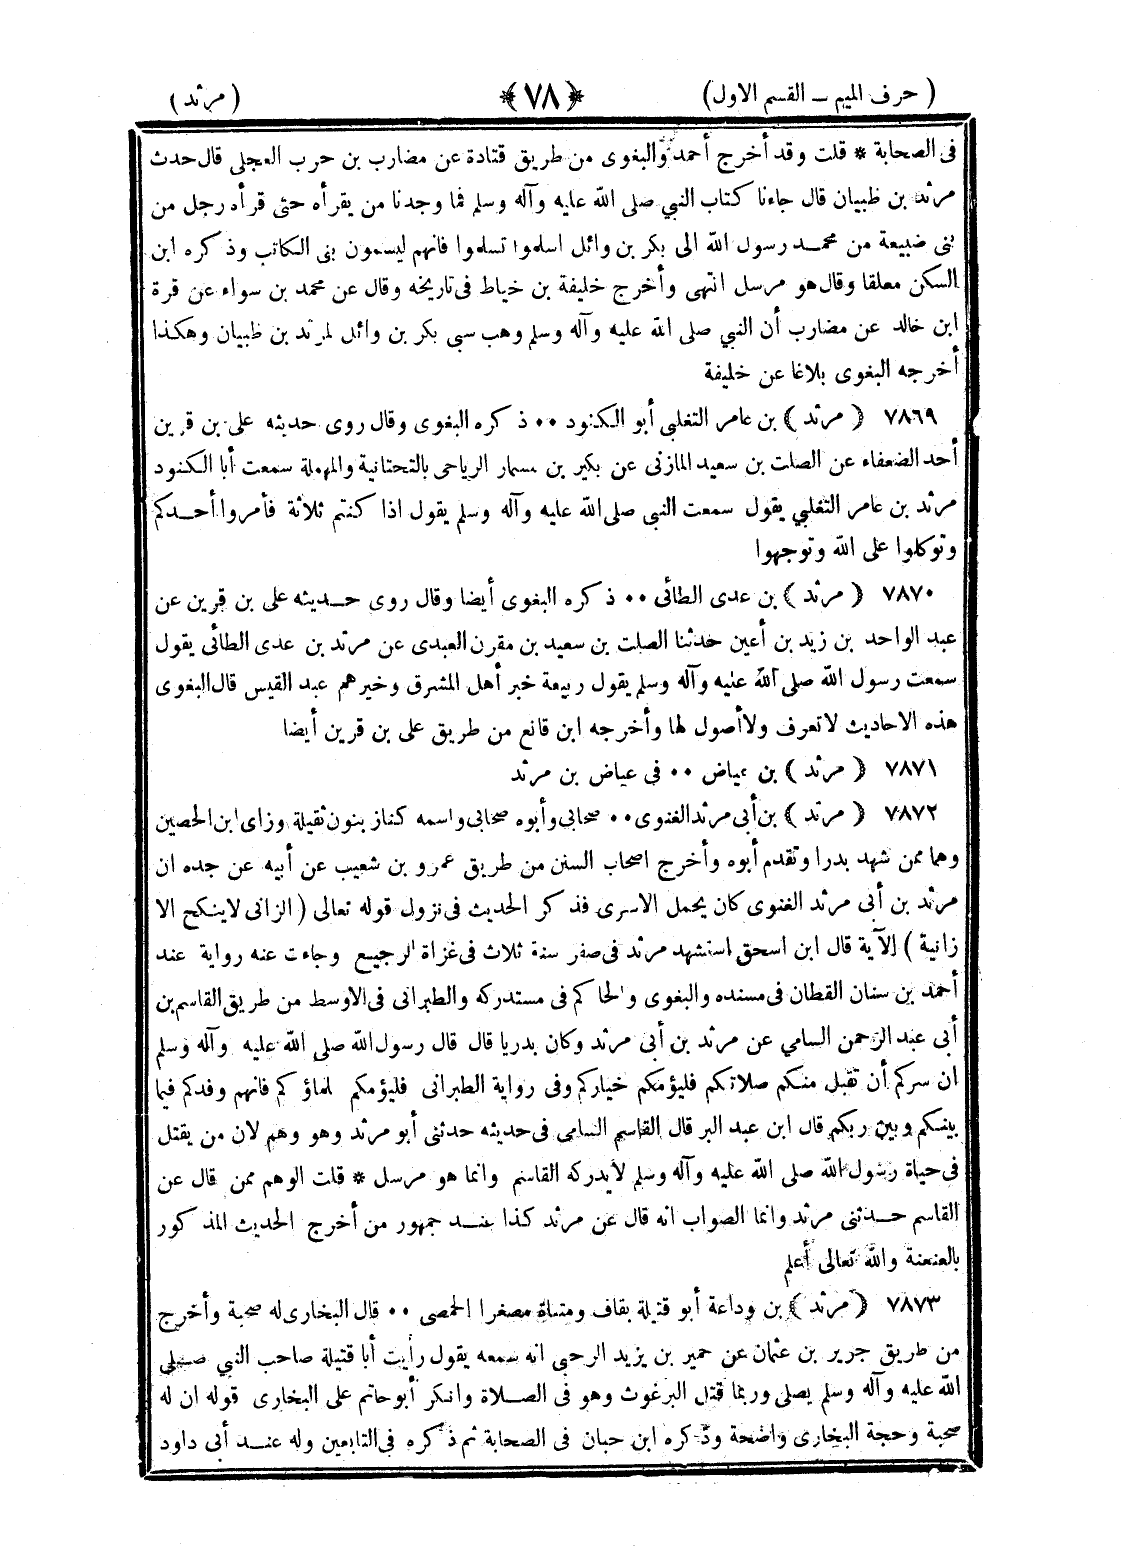 ( حرف الميم ــ القسم الاول) ﴿ ٧٨ ﴾ ( مرثد )
فى الصحابة * قلت وقد أخرج أحمد والبغوى من طريق قتادة عن مضارب بن حرب العجلى قال حدث
مرثد بن ظبيان قال جاءنا كتاب النبي صلى الله عليه وآله وسلم فما وجدنا من يقرأه حتى قرأه رجل من
بنى ضبيعة من محمد رسول الله الى بكر بن وائل اسلموا تسلموا فانهم ليسمون بنى الكاتب وذ كره ابن
السكن معلقا وقال هو مرسل انتهى وأخرج خليفة بن خياط فى تاريخه وقال عن محمد بن سواء عن قرة
ابن خالد عن مضارب أن النبي صلى الله عليه وآله وسلم وهب سبى بكر بن وائل لمرثد بن ظبيان وهكذا
أخرجه البغوى بلاغا عن خليفة
٧٨٦٩ ( مرثد ) بن عامر التغلبي أبو الكنود ٠٠ ذ كره البغوى وقال روى حديثه على بن قرين
أحد الضعفاء عن الصلت بن سعيد المازنى عن بكير بن مسمار الرياحى بالتحتانية والمهملة سمعت أبا الكنود
مرثد بن عامر التغلبي يقول سمعت النبى صلى الله عليه وآله وسلم يقول اذا كنتم ثلاثة فأمروا أحدكم
وتوكلوا على الله وتوجهوا
٧٨٧٠ ( مرثد ) بن عدى الطائى ٠٠ ذ كره البغوى أيضا وقال روى حديثه على بن قرين عن
عبد الواحد بن زيد بن أعين حدثنا الصلت بن سعيد بن مقرن العبدى عن مرثد بن عدى الطائى يقول
سمعت رسول الله صلى الله عليه وآله وسلم يقول ربيعة خير أهل المشرق وخيرهم عبد القيس قال البغوى
هذه الاحاديث لاتعرف ولاأصول لها وأخرجه ابن قانع من طريق على بن قرين أيضا
٧٨٧١ ( مرثد ) بن عياض ٠٠ فى عياض بن مرثد
٧٨٧٢ ( مرثد ) بن أبى مرثد الغنوى ٠٠ صحابي وأبوه صحابي واسمه كناز بنون ثقيلة وزاى ابن الحصين
وهما ممن شهد بدرا وتقدم أبوه وأخرج اصحاب السنن من طريق عمرو بن شعيب عن أبيه عن جده ان
مرثد بن أبى مرثد الغنوى كان يحمل الاسرى فذ كر الحديث فى نزول قوله تعالى ( الزانى لاينكح الا
زانية ) الآية قال ابن اسحق استشهد مرثد فى صفر سنة ثلاث فى غزاة الرجيع وجاءت عنه رواية عند
أحمد بن سنان القطان فى مسنده والبغوى والحاكم فى مستدركه والطبرانى فى الاوسط من طريق القاسم بن
أبى عبد الرحمن السامي عن مرثد بن أبى مرثد وكان بدريا قال قال رسول الله صلى الله عليه وآله وسلم
ان سركم أن تقبل منكم صلاتكم فليؤمكم خياركم وفى رواية الطبرانى فليؤمكم علماؤ كم فانهم وفدكم فيما
بينكم وبين ربكم قال ابن عبد البر قال القاسم السامى فى حديثه حدثنى أبو مرثد وهو وهم لان من يقتل
فى حياة رسول الله صلى الله عليه وآله وسلم لايدركه القاسم وانما هو مرسل * قلت الوهم ممن قال عن
القاسم حدثنى مرثد وانما الصواب انه قال عن مرثد كذا عند جمهور من أخرج الحديث المذ كور
بالعنعنة والله تعالى أعلم
٧٨٧٣ ( مرثد ) بن وداعة أبو قتيلة بقاف ومثناة مصغرا الحمصى ٠٠ قال البخارى له صحبة وأخرج
من طريق جرير بن عثمان عن حمير بن يزيد الرحبى انه سمعه يقول رأيت أبا قتيلة صاحب النبي صلى
الله عليه وآله وسلم يصلى وربما قتل البرغوث وهو فى الصلاة وانكر أبو حاتم على البخارى قوله ان له
صحبة وحجة البخارى واضحة وذ كره ابن حبان فى الصحابة ثم ذ كره فى التابعين وله عند أبى داود